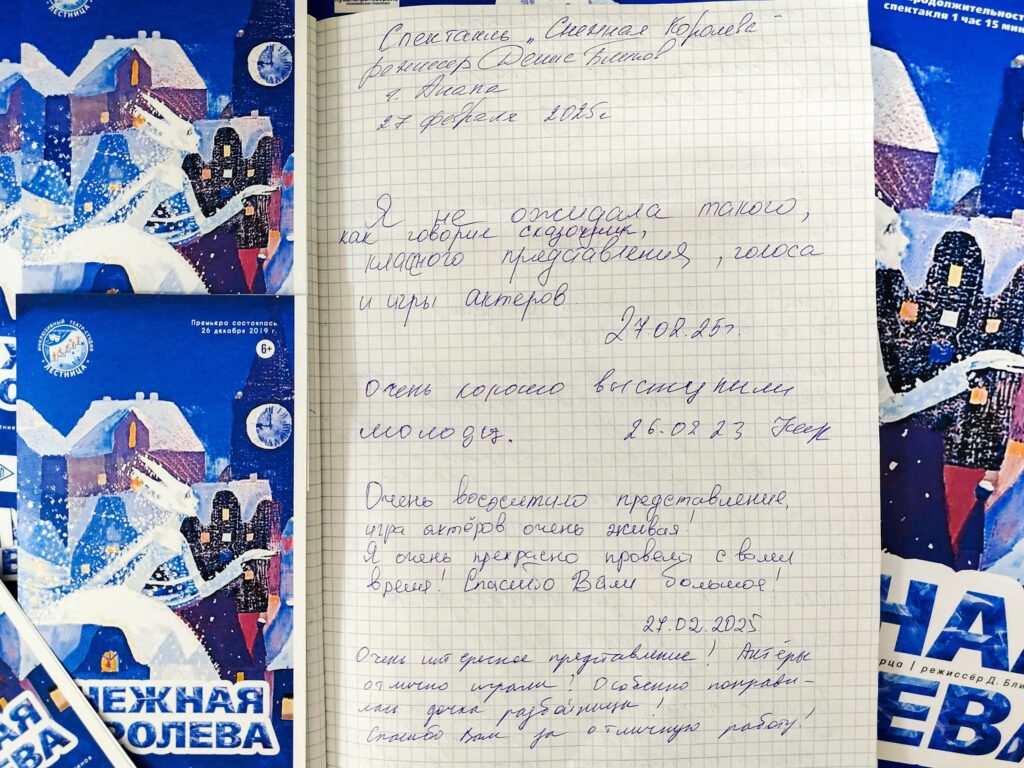 ЛЕСТНИЦА
Спектакль „Снежная Королева"
режиссер Денис Блинов
г. Анапа
27 февраля 2025г
Я не ожидала такого,
как говорил сказочник,
классного представления, голоса
и игры актеров
27.02.25г.
Очень хорошо выступили
молодцы.
26.02 23
Очень восхитило представление,
игра актёров очень живая!
Я очень прекрасно провела с вами
время! Спасибо Вам большое!
27.02.2025
Очень интересное представление! Актёры
отлично играли! Особенно понрави-
лась дочка разбойницы!
Спасибо Вам за отличную работу!
ИНКЛЮЗИВНЫЙ ТЕАТР-СТУДИЯ
ЛЕСТНИЦА
Премьера состоялась
26 декабря 2019 г.
6+
НЕЖНАЯ
РОЛЕВА
АЯ
ЕВА
продолжительность
спектакля 1 час 15 мин
НА
рца | режиссёр Д. Бли
ЕВА